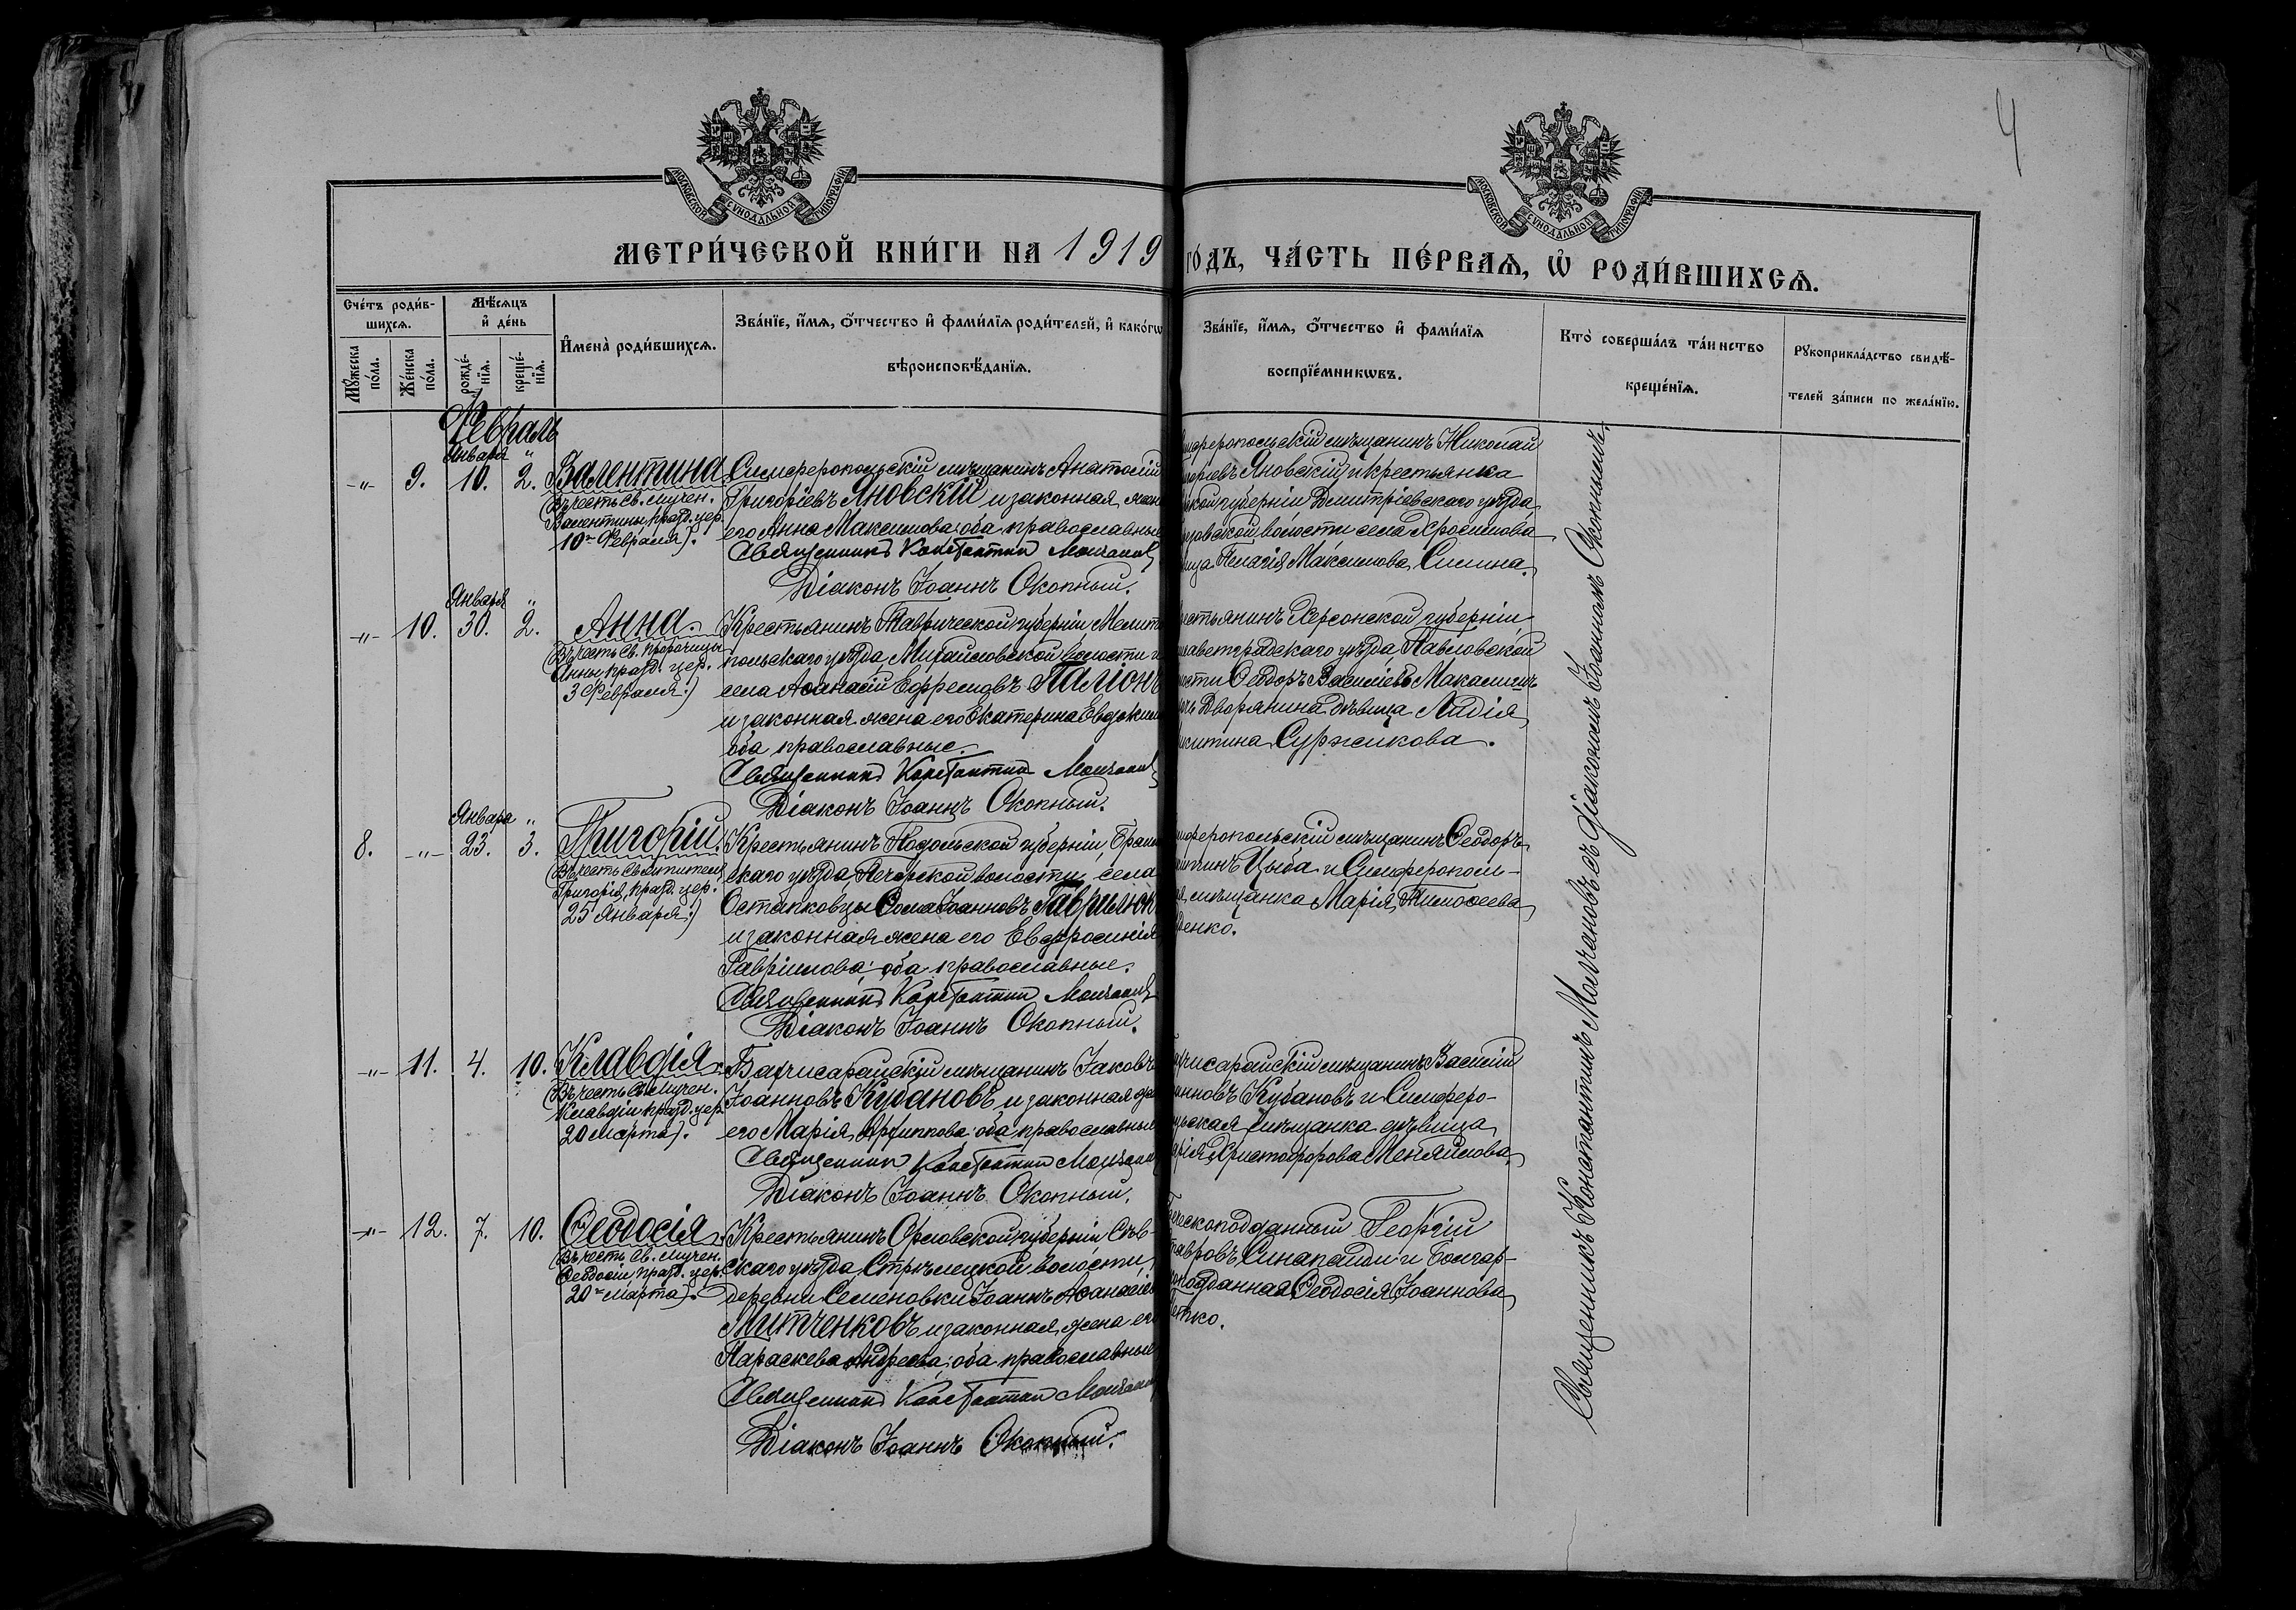 4
МОСКОВСКОЙ СѴНОДАЛЬНОЙ ТИПОГРАФІИ
МОСКОВСКОЙ СѴНОДАЛЬНОЙ ТИПОГРАФІИ
МЕТРИ́ЧЕСКОЙ КНИ́ГИ НА 1919 ГО́ДЪ, ЧА́СТЬ ПЕ́РВАѦ, Ѽ РОДИ́ВШИХСѦ.
Сче́тъ роди́в-
шихсѧ.
Мꙋ́жеска
по́ла.
Же́нска
по́ла.
Мѣ́сѧцъ
и҆ де́нь
рожде́-
нїѧ.
креще́-
нїѧ.
И҆мена̀ роди́вшихсѧ.
Зва́нїе, и҆́мѧ, ѻ҆́тчество и҆ фами́лїѧ роди́телей, и҆ како́гѡ
вѣроисповѣ́данїѧ.
Зва́нїе, и҆́мѧ, ѻ҆́тчество и҆ фами́лїѧ
воспрїе́мникѡвъ.
Кто̀ соверша́лъ та́инство
креще́нїѧ.
Рꙋкоприкла́дство свидѣ́-
телей за́писи по жела́нїю.
Февраль
Января "
-"- 9. 10. 2. Валентина
(Въ честь св. мучен.
Валентины, празд. цер.
10го Февраля).
Симферопольскій мѣщанинъ Анатолій
Григоріевъ Яновскій и законная жена
его Анна Максимова: оба православные
Священникъ Константин Молчанов
Діаконъ Іоаннъ Окопный.
мферопольскій мѣщанинъ Николай
горіевъ Яновскій и крестьянка
кой губерніи Дмитріевскаго уѣзда
овской волости села
ица Пелагія Максимова Силина.
Января "
-"- 10. 30. 2. Анна.
(Въ честь Св. Пророчицы
Анны, празд. цер.
3 Февраля.)
Крестьянинъ Таврической губерніи, Мелито
польскаго уѣзда, Михайловской волости и
села Аѳанасій Ефремовъ Паліонъ
и законная жена его Екатерина Евдоким
оба православные.
Священникъ Константин Молчанов
Діаконъ Іоаннъ Окопный.
естьянинъ Херсонской губерніи
саветградскаго уѣзда, Павловской
ости Ѳеодоръ Василіевъ
чь Дворянина дѣвица Лидія
Никитина Суржикова.
Января "
8. -"- 23. 3. Григорій.
(Въ честь Святителя
Григорія, празд. цер.
25 Января.)
Крестьянинъ Подольской губерніи, Брац
скаго уѣзда, Печерской волости, села
Остапковцы Ѳома Іоанновъ Гаврилюк
и законная жена его Евфросинія
Гавріилова: оба православные.
Священникъ Константин Молчанов
Діаконъ Іоаннъ Окопный.
мферопольскій мѣщанинъ Ѳеодоръ
Цыба и Симферополь-
я мѣщанка Марія Тимоѳеева
енко.
-"- 11. 4. 10. Клавдія.
(Въ честь Св. Мучен.
Клавдіи празд. цер.
20 Марта).
Бахчисарайскій мѣщанинъ Іаковъ
Іоанновъ Кубановъ и законная же
его Марія Архиппова: оба православные
Священникъ Константин Молчанов
Діаконъ Іоаннъ Окопный.
чисарайскій мѣщанинъ Василій
анновъ Кубановъ и Симферо-
льская мѣщанка дѣвица
рія Христофорова Меняйлова.
-"- 12. 7. 10. Ѳеодосія.
(Въ честь Св. Мучен.
Ѳеодосіи, празд. цер.
20го Марта).
Крестьянинъ Орловской губерніи, Сѣв-
скаго уѣзда, Стрѣлецкой волости,
деревни Семеновки Іоаннъ Аѳанасіев
Митченковъ и законная жена его
Параскева Андреева: оба православные
Священникъ Константин Молчанов
Діаконъ Іоаннъ Окопный.
ческоподданный Георгій
тавровъ Синапаиди и Болгар-
коподданная Ѳеодосія Іоаннова
етко.
Священникъ Константинъ Молчановъ съ діакономъ Іоанномъ Окопнымъ.